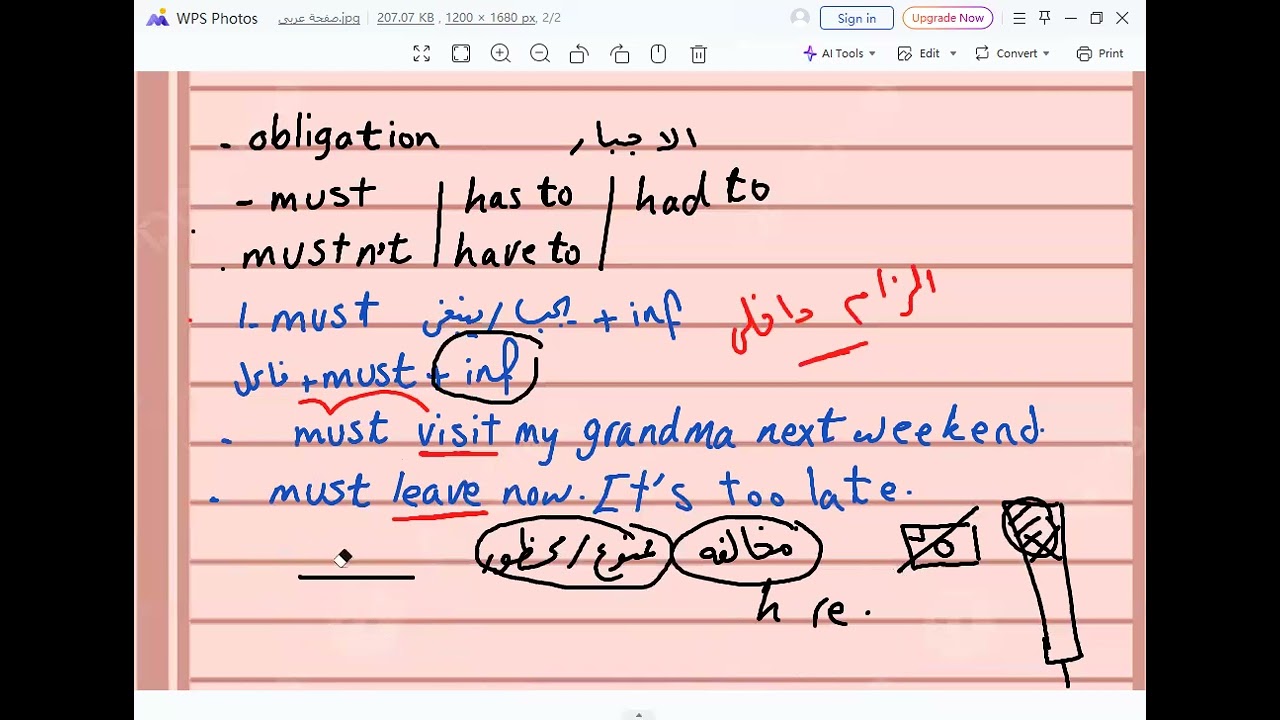 WPS Photos صفحة عربي.jpg 207.07 KB , 1200 × 1680 px, 2/2 Sign in Upgrade Now
AI Tools Edit Convert Print
- obligation الاجبار
- must | has to | had to
mustn't | have to |
1- must يجب / ينبغى + inf الزام داخلى
فاعل + must + inf
- must visit my grandma next weekend.
. must leave now. It's too late.
مخالفه ممنوع / محظور
h re .